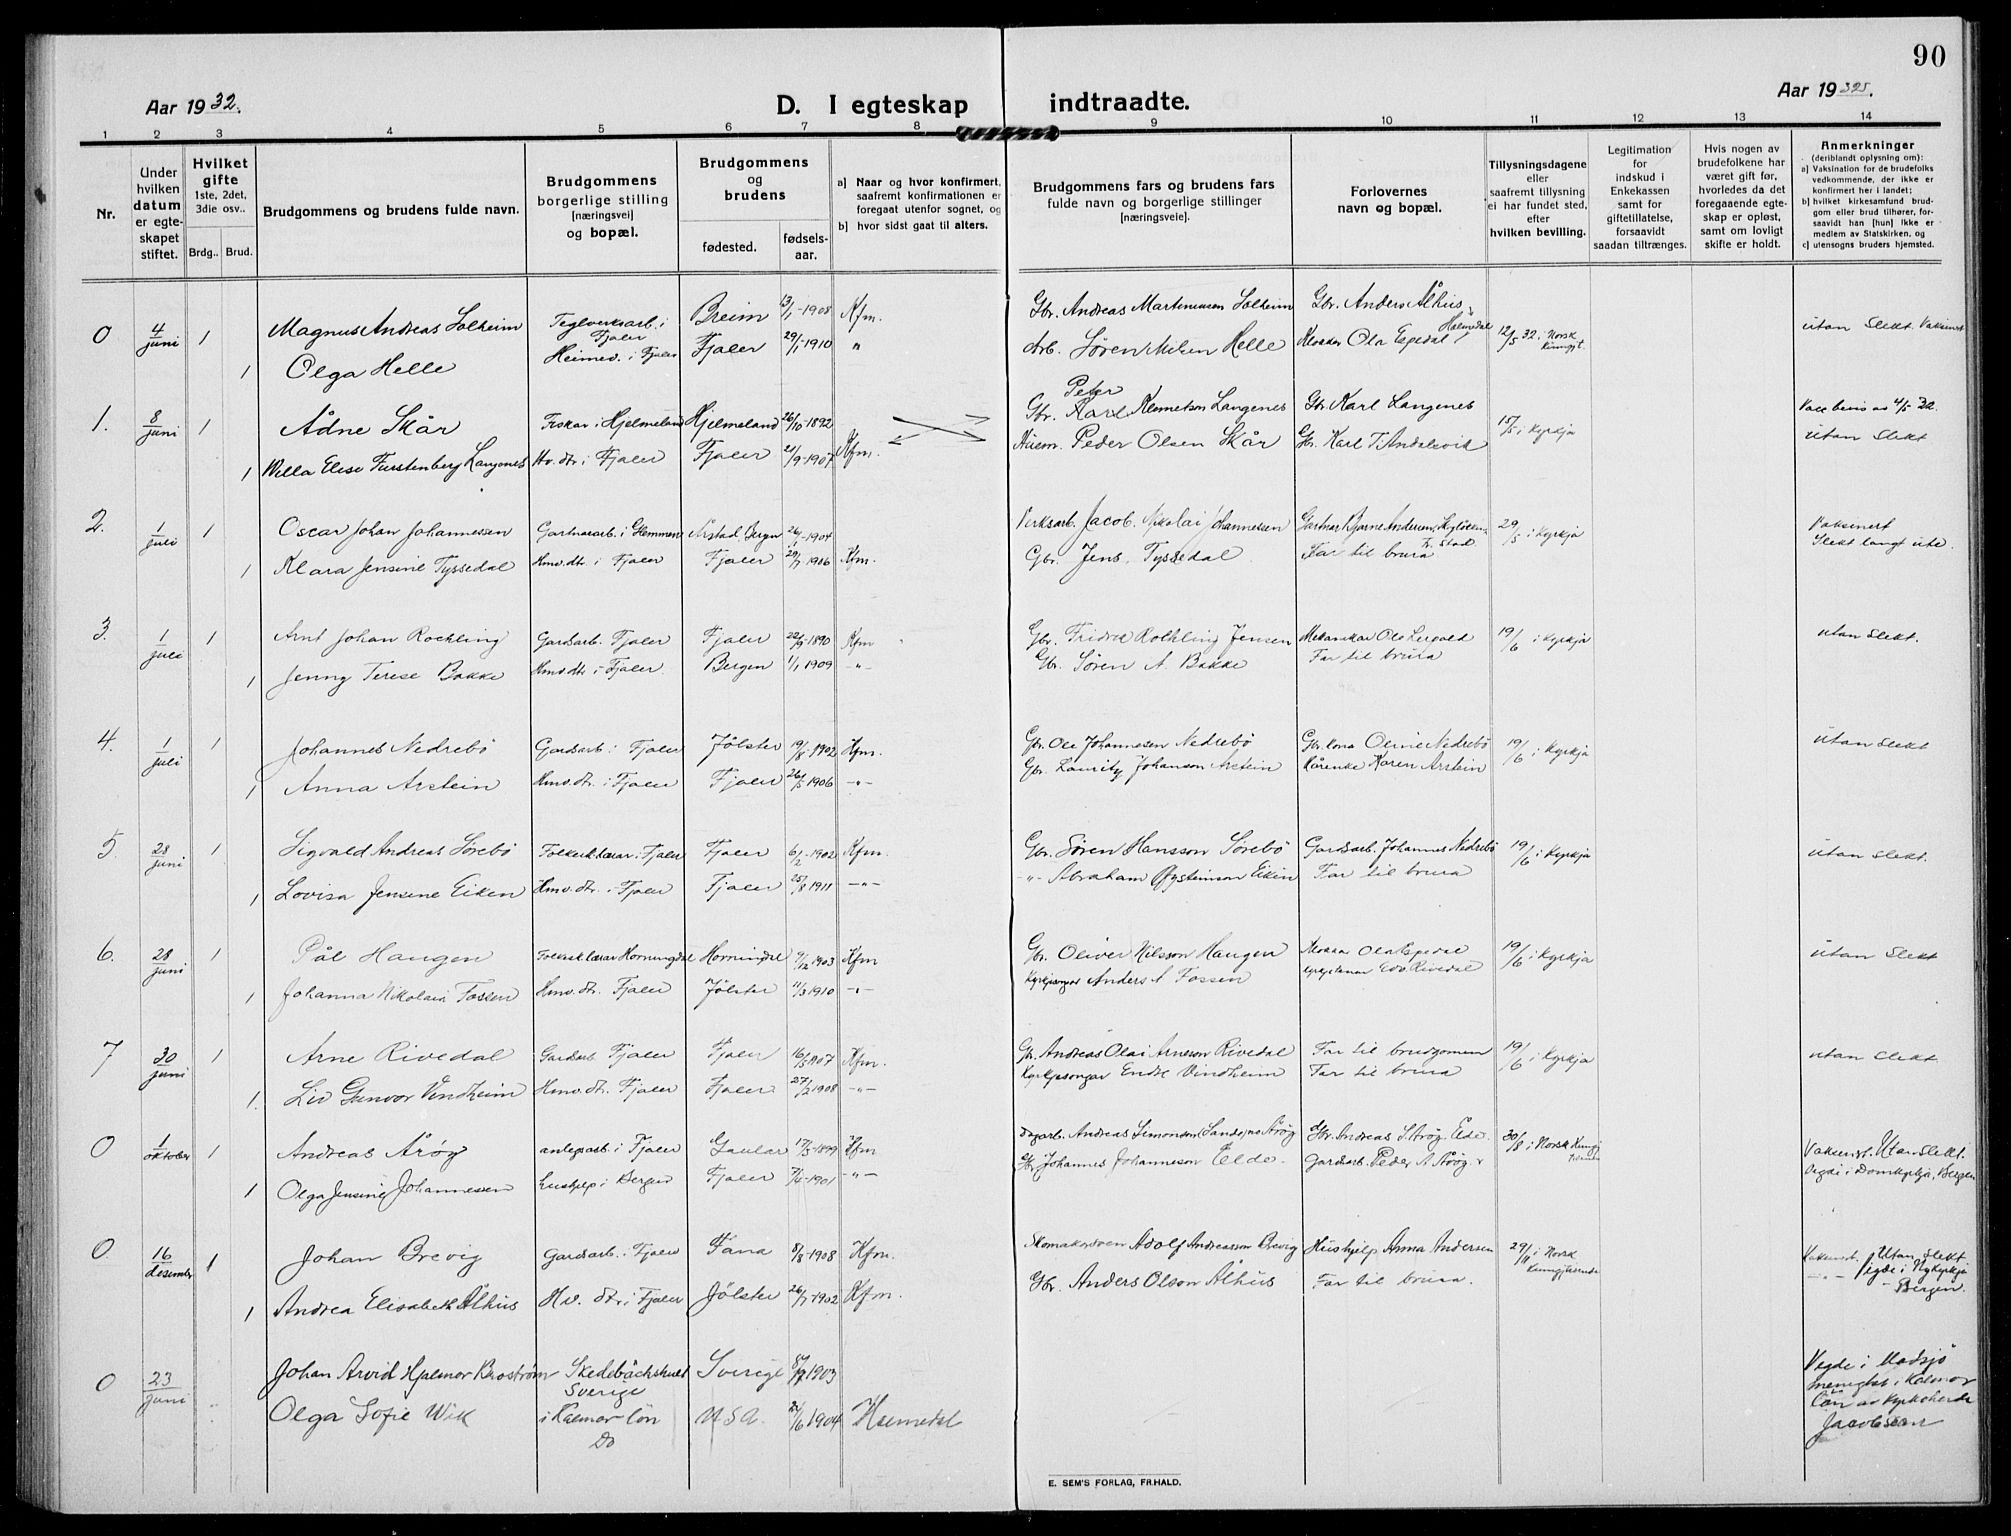 90
Aar 1932.
D. I egteskap indtraadte.
Aar 19
1 2 3 4 5 6 7 8 9 10 11 12 13 14
Nr.
Under hvilken datum er egteskapet stiftet.
Hvilket gifte 1ste, 2det, 3die osv..
Brdg.. Brud.
Brudgommens og brudens fulde navn.
Brudgommens borgerlige stilling [næringsvei] og bopæl.
Brudgommens og brudens
fødested.
fødselsaar.
a] Naar og hvor konfirmert, saafremt konfirmationen er foregaat utenfor sognet, og
b] hvor sidst gaat til alters.
Brudgommens fars og brudens fars fulde navn og borgerlige stillinger [næringsveie].
Forlovernes navn og bopæl.
Tillysningsdagene eller saafremt tillysning ei har fundet sted, efter hvilken bevilling.
Legitimation for indskud i Enkekassen samt for giftetillatelse, forsaavidt saadan tiltrænges.
Hvis nogen av brudefolkene har været gift før, hvorledes da det foregaaende egteskap er opløst, samt om lovligt skifte er holdt.
Anmerkninger (deriblandt oplysning om):
a] Vaksination for de brudefolks vedkommende, der ikke er konfirmert her i landet;
b] hvilket kirkesamfund brudgom eller brud tilhører, forsaavidt han [hun] ikke er medlem av Statskirken, og
c] utensogns bruders hjemsted.
0 4/juni 1 Magnus Andreas Solheim Teglverksarb. i Fjaler Breim 13/1-1908 Kfm. Gbr. Andreas Martinussen Solheim Gbr. Anders Ålhus 12/5 32 i Norsk Kunngj. utan Slekt. Vaksinert
1 Olga Helle Heimev. i Fjaler Fjaler 29/1-1910 " Arb. Sören Nilsen Helle Klokkar Ola Espedal Holmedal
1. 8/juni 1 Ådne Skår Fiskar i Hjelmeland Hjelmeland 26/10-1892 Gbr. Peter Karl Klemetsen Langenes Gbr Karl Langenes 15/5 i Kyrkja Vacc bevis av 4/5 32.
1 Willa Elise Furstenberg Langenes Hv. dtr. i Fjaler Fjaler 21/9-1907 Kfm. Husm. Peder Olsen Skår Gb. Karl T. Andalsvik utan Slekt
2. 1/juli 1 Oscar Johan Johannessen Gartnararb. i Glemmen Årstad, Bergen 26/1-1904 Verksarb. Jacob Nikolai Johannessen Gartnar Bjarne Andersen, Fr. Stad 29/5 i Kyrkja Vaksinert
1 Klara Jensine Tyssedal Hmv. dtr. i Fjaler Fjaler 29/7-1906 Kfm. Gbr. Jens Tyssedal Far til brura Slekt langt ute.
3. 1/juli 1 Arnt Johan Rochling Gardsarb. Fjaler Fjaler 22/9-1890 Kfm Gbr. Fridrik Rolkling Jensen Mekanikar Ole Lergald 19/6 i Kyrkja utan slekt.
1 Jenny Terese Bakke Hmv. dtr. i Fjaler. Bergen 1/1 1909 -"- Gbr. Sören A. Bakke Far til brura
4. 1/juli 1 Johannes Nedrebö Gardsarb. i Fjaler Jölster 19/8-1902 Kfm. Gbr. Ole Johannesen Nedrebö Gbr. kona Oline Nedrebö 19/6 i Kyrkja utan slekt
1 Anna Arstein Hmv. dtr. i Fjaler Fjaler 26/5 1906 -"- Gbr. Lauritz Johanson Arstein Kårenke Karen Arstein
5 28/juni 1 Sigvald Andreas Sörebö Folkesklærar i Fjaler Fjaler 6/2-1902 Kfm. Gbr. Sören Hansson Sörebö Gardsarb. Johannes Nedrebö 19/6 i Kyrkja utan slekt.
1 Lovisa Jensine Eiken Hmv. dtr. i Fjaler Fjaler 25/8 1911 -"- -"- Abraham Øysteinson Eiken Far til brura
6. 28/juni 1 Pål Haugen Folkesklærar Hornindal Hornindal 9/12 1903 Kfm Gbr. Oliver Nilsson Haugen Klokkar Ola Espedal 19/6 i Kyrkja utan Slekt
1 Johanna Nikolai Fossen Hmv. dtr. Fjaler Jölster 11/3 1910 -"- Kyrkjesongar Anders A Fossen Edv. Rivedal
7 30/juni 1 Arne Rivedal Gardsarb. Fjaler Fjaler 16/5 1907 Kfm. Gbr. Andreas Olai Arneson Rivedal Far til brudgomen 19/6 i Kyrkja utan slekt
1. Liv Gunvor Vindheim Hmv. dtr. Fjaler Fjaler 27/2 1908 -"- Kyrkjesongar Endre Vindheim Far til brura
0 1/oktober 1 Andreas Årög anlegsarb. i Fjaler Gaular 17/5-1899 Kfm Dagarb. Andreas Simonson Årög Gbr. Andreas S. Årög Elde. 30/8 i Norsk Kunngj. Vaksinert. Utan slekt.
1 Olga Jensine Johannessen hushjelp i Bergen Fjaler 7/4-1901 -"- Gbr Johannes Johanneson Elde. Gardsarb. Peder A Årög Vigde i Domkyrkja, Bergen
0. 16/desember 1 Johan Brevig Gardsarb. i Fjaler Fana 8/8-1908 Kfm. Skomakar Adolf Andreasson Brevig Hushjelp Anna Andersen 29/ i Norsk Kunngjersende Vaksinert. Utan slekt
1 Andrea Elisabeth Ålhus Hv. dtr. i Fjaler Jölster 26/7-1902 Kfm. Gbr. Anders Olson Ålhus Far til brura. -"- Vigde i Nykyrkja - Bergen.
0 23/juni Johan Arvid Hjalmar Broström Sverige Sverige 1903 Vigde i Madsjö
Olga Sofie Wik i Kalmar län Do U S A. 1904 Holmedal menighet i Kalmar Län av Kyrkoherde Jacobsson
E. SEM'S FORLAG, FR.HALD.